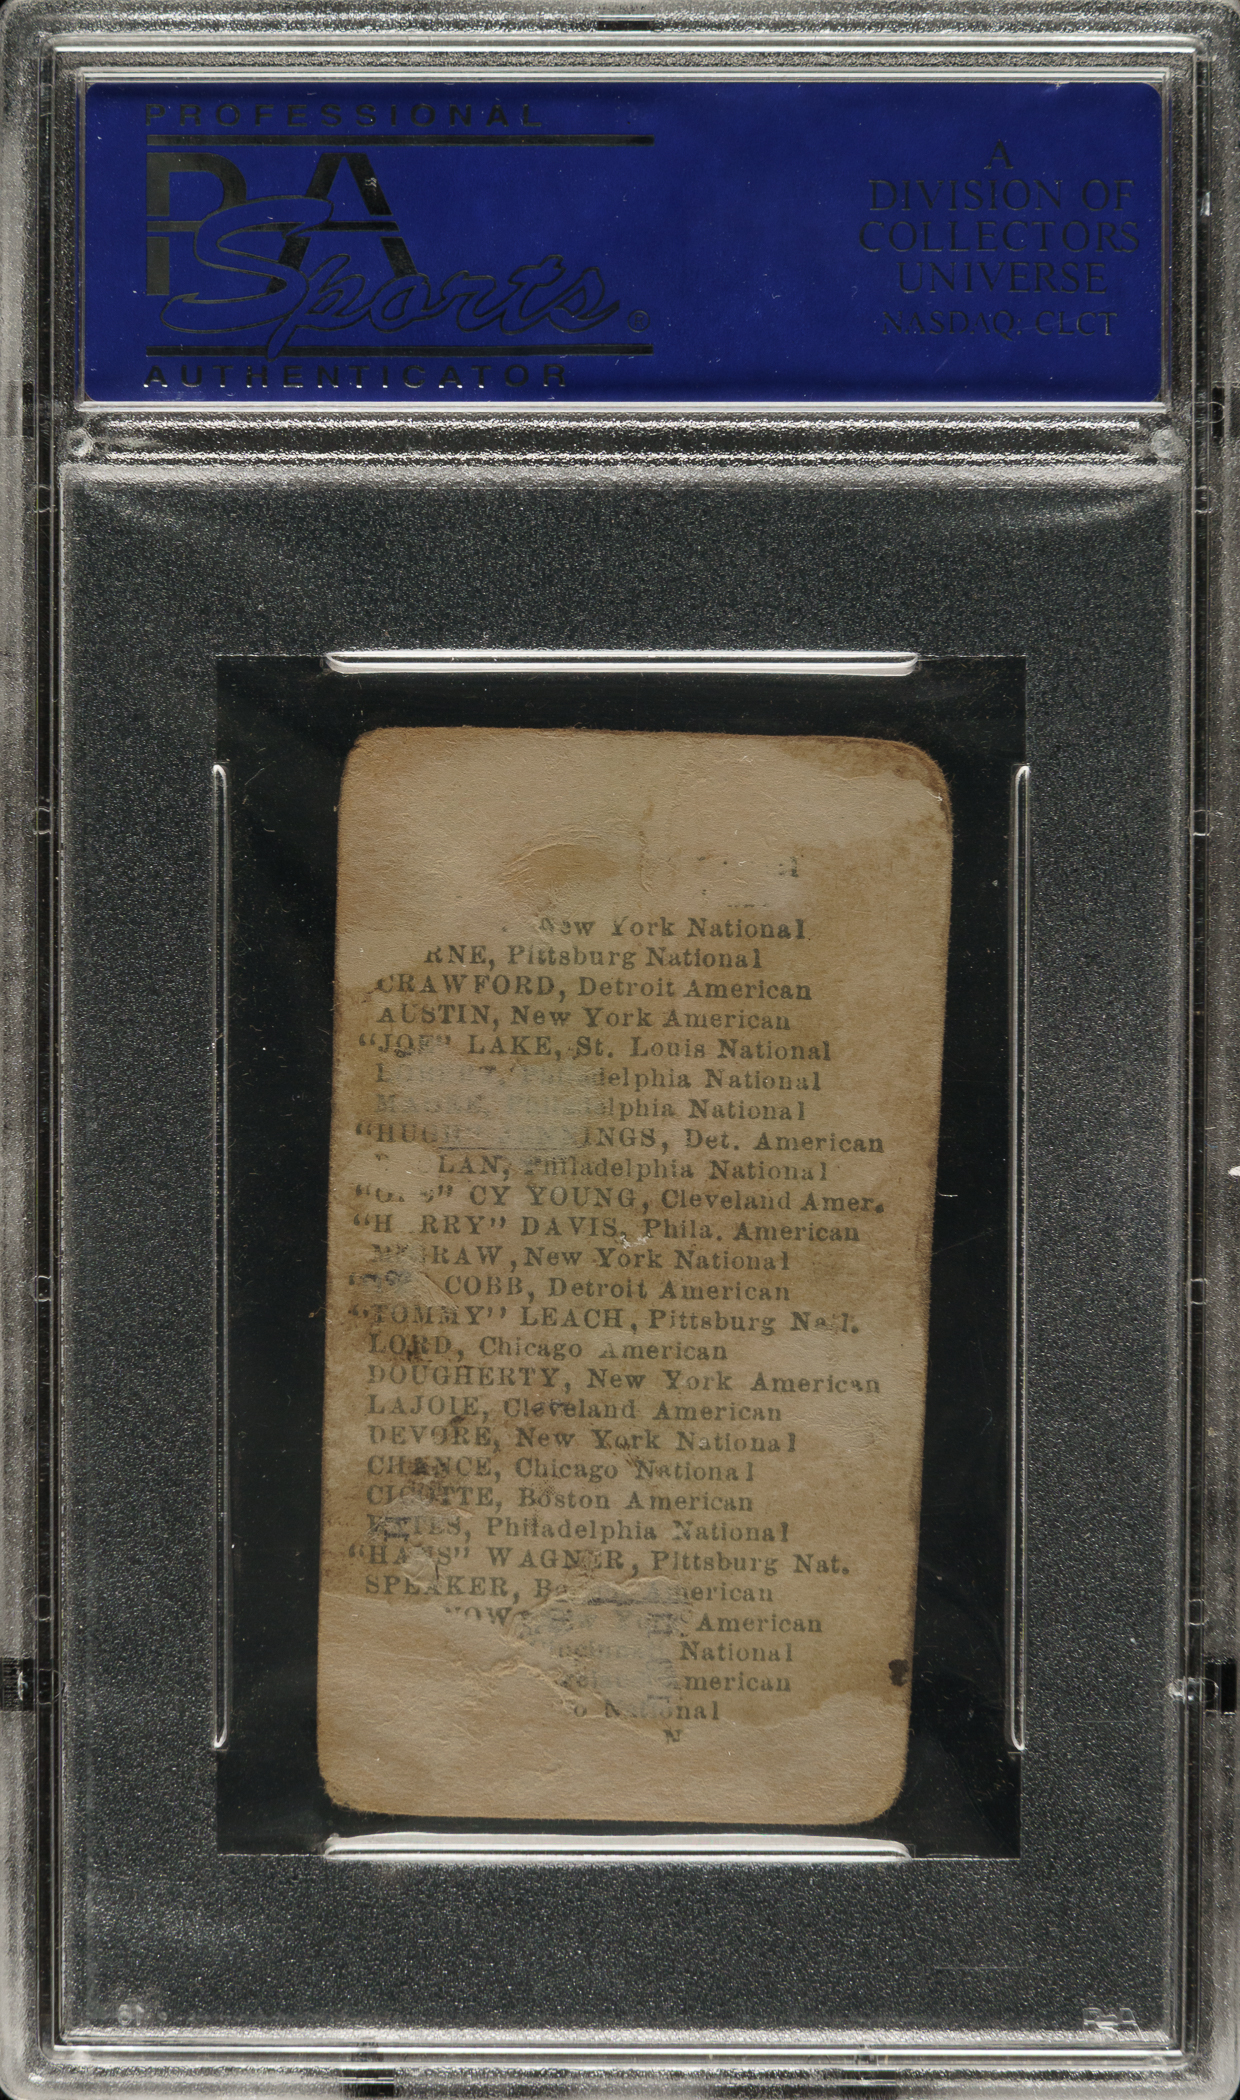 PROFESSIONAL
PSA
Sports®
AUTHENTICATOR
A
DIVISION OF
COLLECTORS
UNIVERSE
NASDAQ: CLCT
New York National
RNE, Pittsburg National
CRAWFORD, Detroit American
AUSTIN, New York American
"JOE" LAKE, St. Louis National
Philadelphia National
MAGEE, Philadelphia National
"HUGH" JENNINGS, Det. American
LAN, Philadelphia National
CY YOUNG, Cleveland Amer.
"HARRY" DAVIS, Phila. American
McGRAW, New York National
COBB, Detroit American
"TOMMY" LEACH, Pittsburg Natl.
LORD, Chicago American
DOUGHERTY, New York American
LAJOIE, Cleveland American
DEVORE, New York National
CHANCE, Chicago National
CICOTTE, Boston American
BATES, Philadelphia National
"HANS" WAGNER, Pittsburg Nat.
SPEAKER, Boston American
New York American
Cincinnati National
American
National
N
PSA